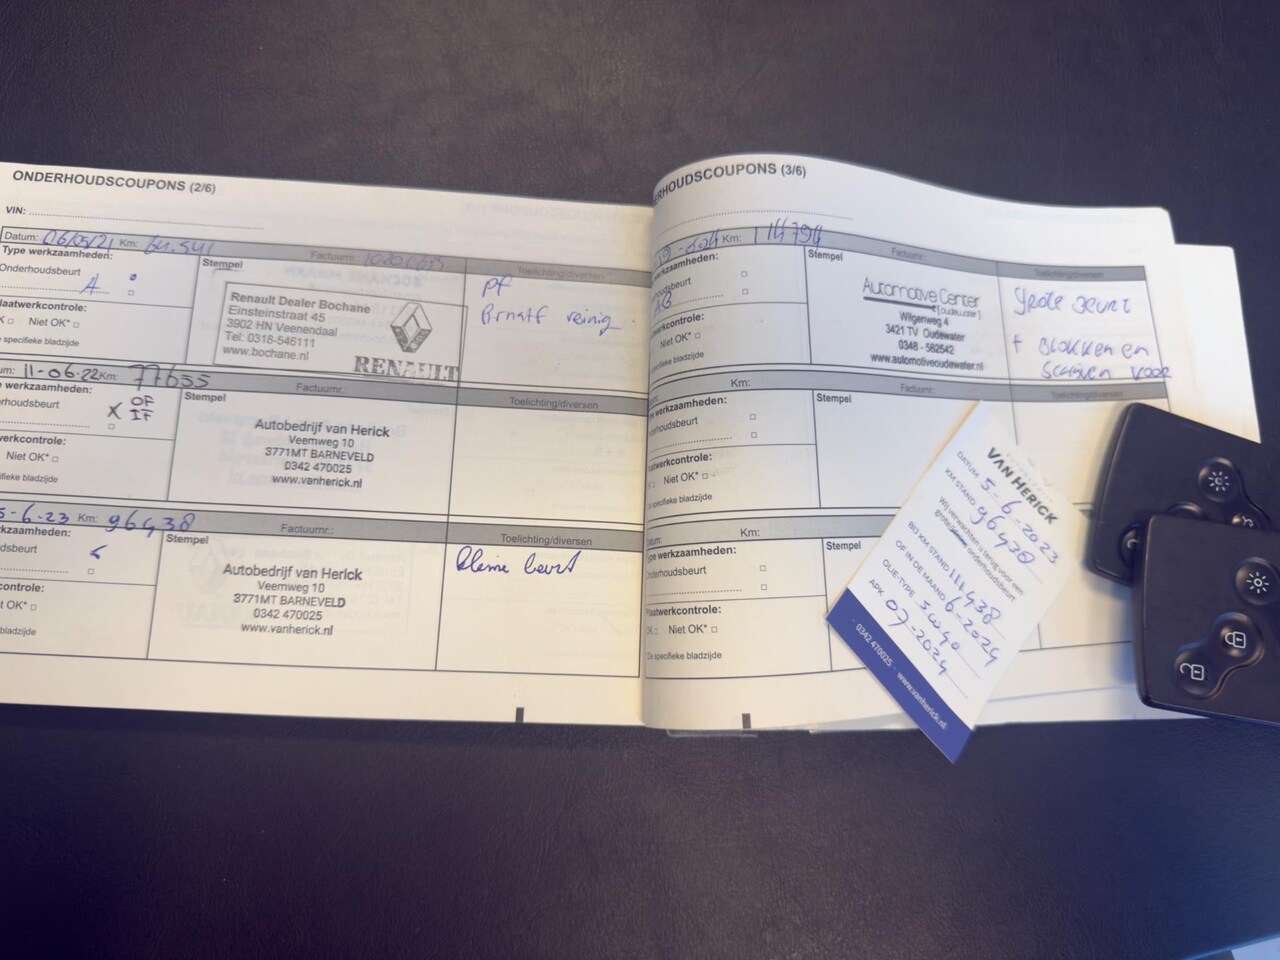 ONDERHOUDSCOUPONS (2/6)
VIN:
Datum: 06/05/21 Km: 64.541
Factuurnr.:
Toelichting/diversen
Type werkzaamheden:
Onderhoudsbeurt
A
Stempel
Renault Dealer Bochane
Einsteinstraat 45
3902 HN Veenendaal
Tel: 0318-546111
www.bochane.nl
RENAULT
Pf
reinig
laatwerkcontrole:
Niet OK*
specifieke bladzijde
11-06.22 Km: 77655
Factuurnr.:
Toelichting/diversen
werkzaamheden:
rhoudsbeurt
X OF
IF
Stempel
Autobedrijf van Herick
Veemweg 10
3771MT BARNEVELD
0342 470025
www.vanherick.nl
werkcontrole:
Niet OK*
ifieke bladzijde
5-6.23 Km: 96438
Factuurnr.:
Toelichting/diversen
kzaamheden:
dsbeurt
Stempel
Autobedrijf van Herick
Veemweg 10
3771MT BARNEVELD
0342 470025
www.vanherick.nl
Kleine beurt
controle:
t OK*
e bladzijde
RHOUDSCOUPONS (3/6)
Km: 114794
Factuurnr.:
Toelichting/diversen
kzaamheden:
houdsbeurt
Stempel
Automotive Center
[oudewater]
Wilgenweg 4
3421 TV Oudewater
0348 - 562542
www.automotiveoudewater.nl
grote beurt
+ Blokken en
schijven voor
werkcontrole:
Niet OK*
specifieke bladzijde
Km:
Factuurnr.:
Toelichting/diversen
werkzaamheden:
nderhoudsbeurt
Stempel
aatwerkcontrole:
Niet OK*
specifieke bladzijde
Datum:
Km:
Factuurnr.:
Type werkzaamheden:
Onderhoudsbeurt
Stempel
Plaatwerkcontrole:
OK Niet OK*
*De specifieke bladzijde
VAN HERICK
DATUM 5-6-2023
KM STAND 96438
Wij verwachten u terug voor een
grote/kleine onderhoudsbeurt
BIJ KM STAND 111438
OF IN DE MAAND 6-2024
OLIE-TYPE 5W40
APK 07-2024
0342 470025 - www.vanherick.nl